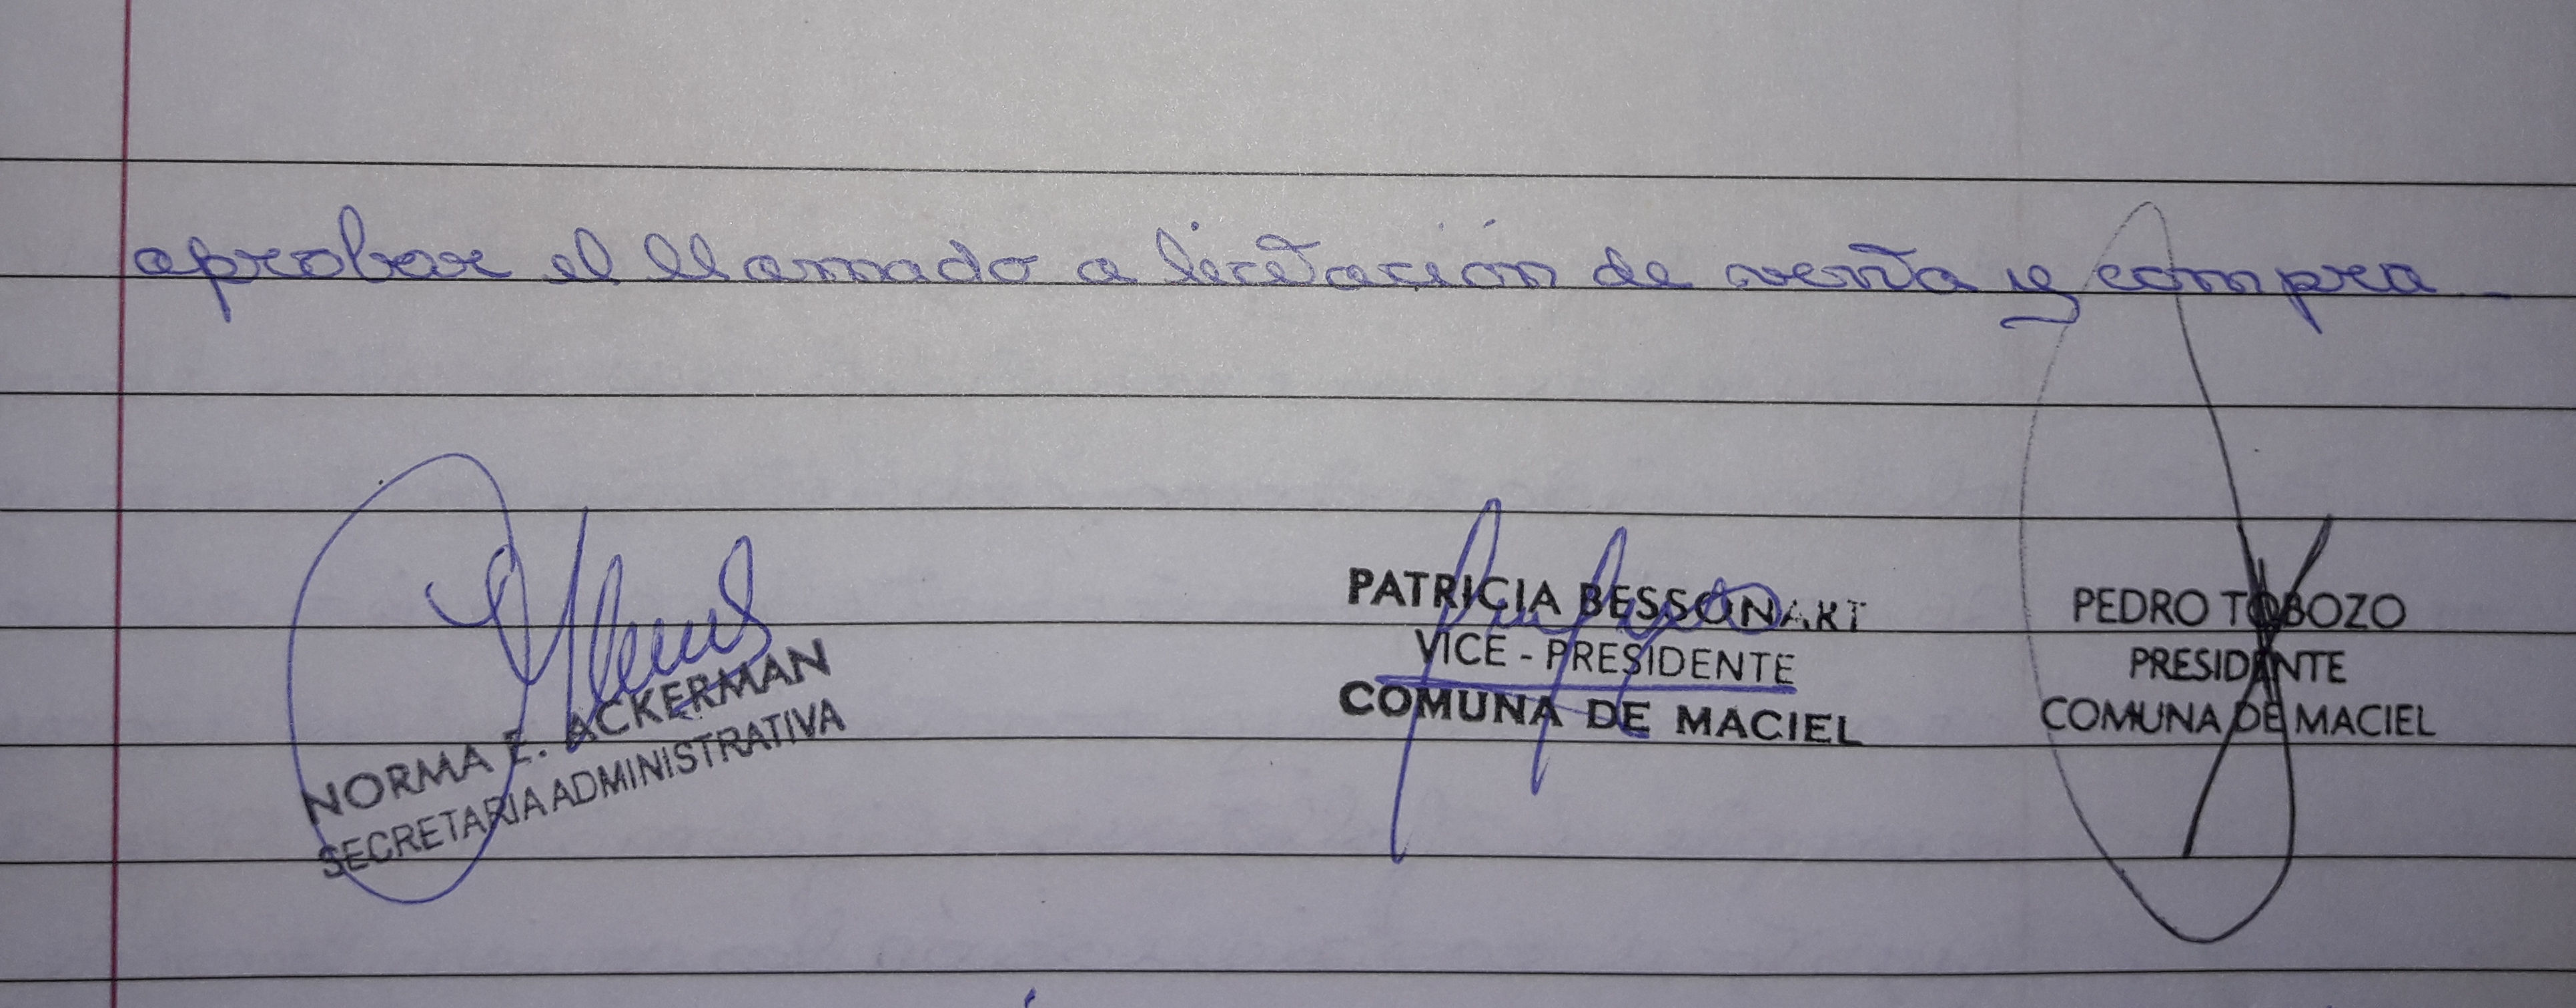 aprobar el llamado a licitación de venta y compra -
NORMA E. ACKERMAN
SECRETARIA ADMINISTRATIVA
PATRICIA BESSONART
VICE - PRESIDENTE
COMUNA DE MACIEL
PEDRO TOBOZO
PRESIDENTE
COMUNA DE MACIEL